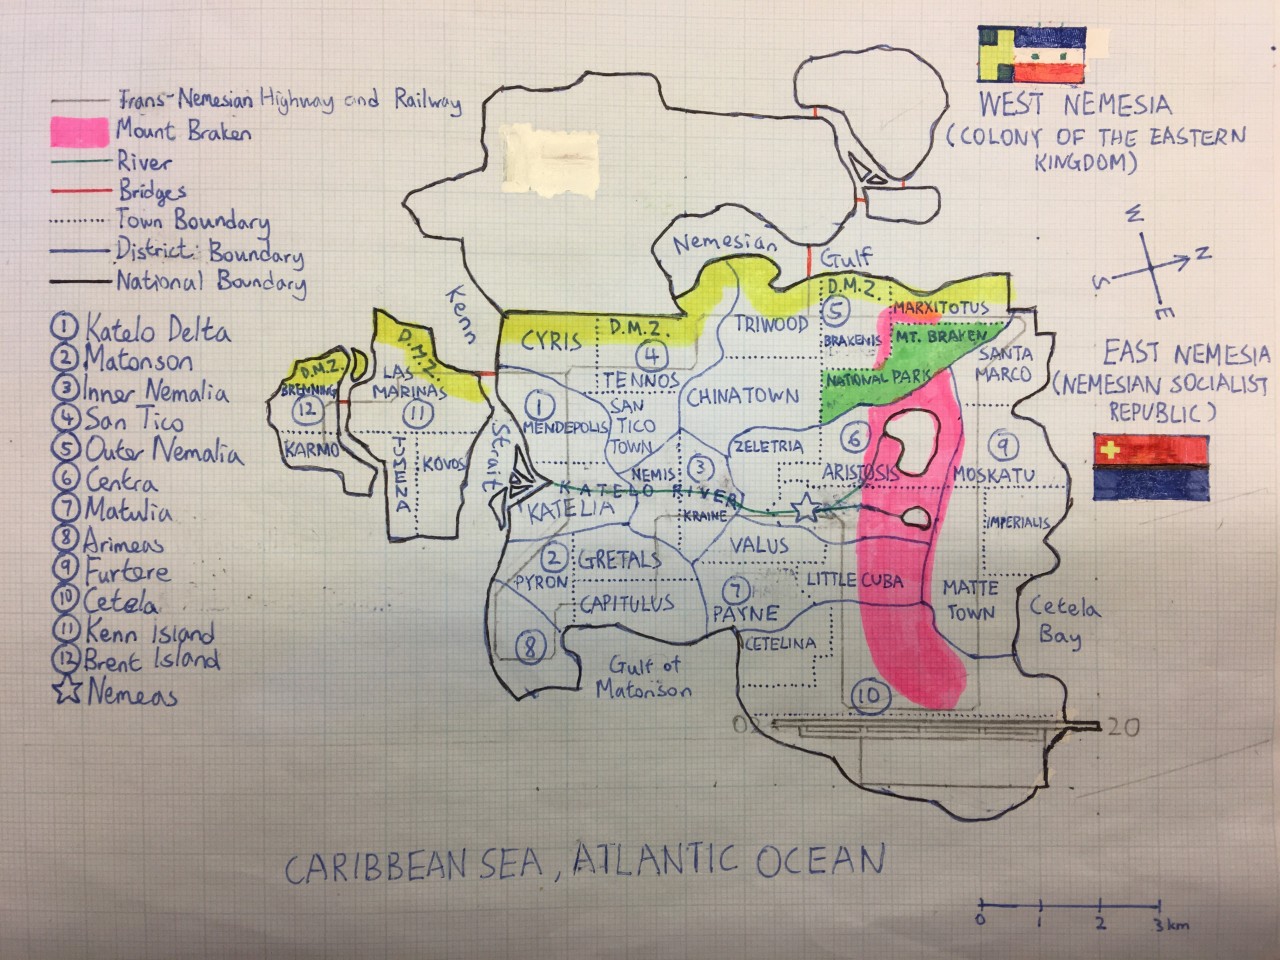 Trans-Nemesian Highway and Railway
Mount Braken
River
Bridges
Town Boundary
District Boundary
National Boundary
1 Katelo Delta
2 Matonson
3 Inner Nemalia
4 San Tico
5 Outer Nemalia
6 Centra
7 Matulia
8 Arimeas
9 Furtere
10 Cetela
11 Kenn Island
12 Brent Island
Nemeas
WEST NEMESIA
(COLONY OF THE EASTERN
KINGDOM)
W
N
S
E
EAST NEMESIA
(NEMESIAN SOCIALIST
REPUBLIC)
Nemesian
Gulf
Kenn
Strait
D.M.Z.
BRENNING
12
KARMO
D.M.Z.
LAS
MARINAS
11
TUMENA
KOVOS
CYRIS
D.M.Z.
4
TENNOS
TRIWOOD
D.M.Z.
5
MARXITOTUS
BRAKENIS
MT. BRAKEN
NATIONAL PARK
SANTA
MARCO
1
MENDEPOLIS
SAN
TICO
TOWN
CHINATOWN
ZELETRIA
6
ARISTOSIS
9
MOSKATU
NEMIS
3
KATELO RIVER
KATELIA
KRAINE
IMPERIALIS
2
PYRON
GRETALS
VALUS
CAPITULUS
7
PAYNE
LITTLE CUBA
MATTE
TOWN
Cetela
Bay
8
Gulf of
Matonson
CETELINA
10
02
20
CARIBBEAN SEA, ATLANTIC OCEAN
0 1 2 3 km